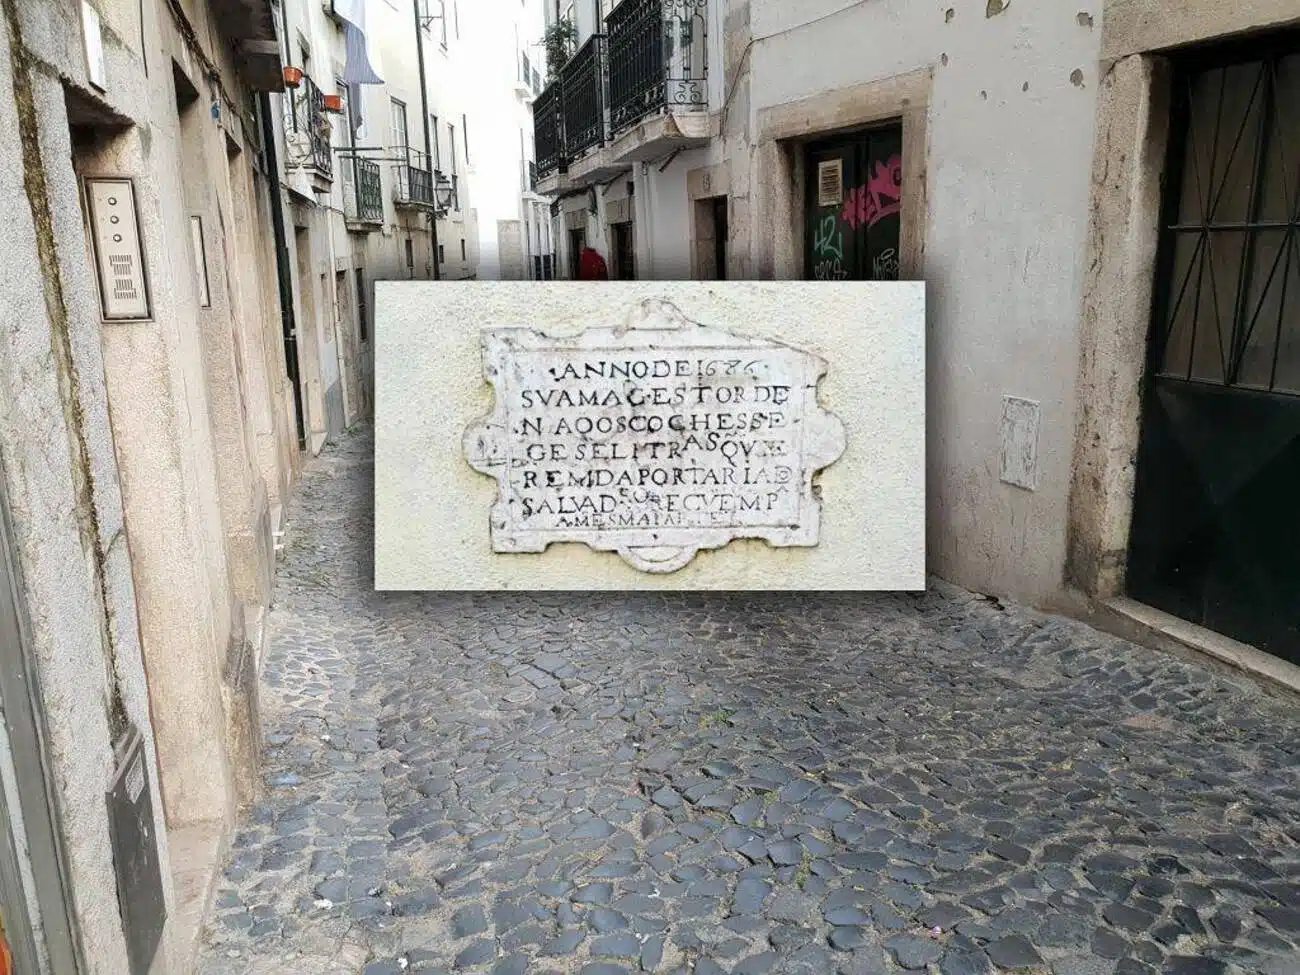 ·ANNO DE 1686·
SVA MAG·ESTOR DE
N A AOS COCHES SE
GES E LITRAS QVE
REM DA PORTARIA D
SALVAD RECVEM P
A MESMA PAR
VENO
42